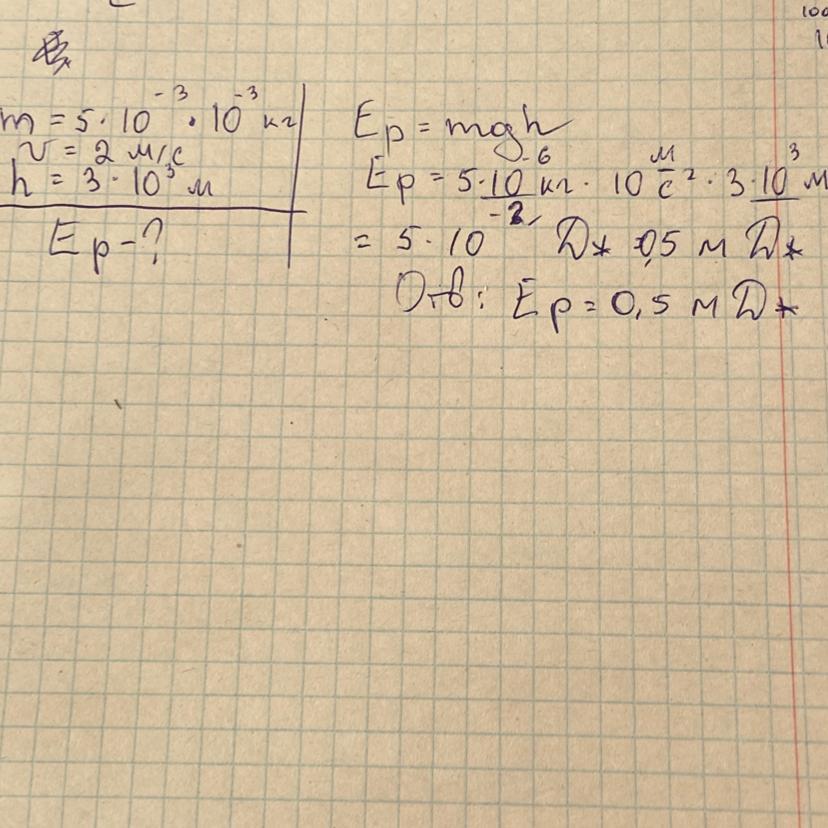 100
m = 5 · 10⁻³ · 10⁻³ кг
v = 2 м/с
h = 3 · 10³ м
Ep - ?
Ep = mgh
Ep = 5 · 10⁻⁶ кг · 10 м/с² · 3 · 10³ м
= 5 · 10⁻² Дж 0,5 м Дж
Отв: Ep = 0,5 м Дж